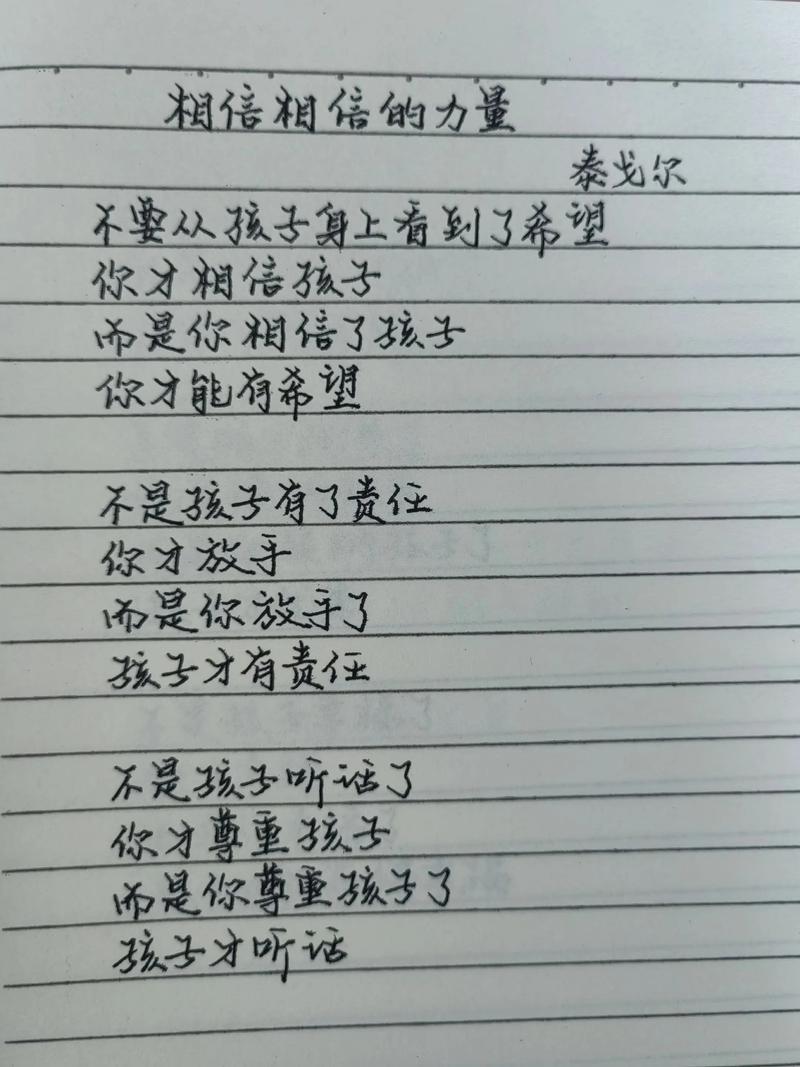 相信相信的力量
泰戈尔
不要从孩子身上看到了希望
你才相信孩子
而是你相信了孩子
你才能有希望
不是孩子有了责任
你才放手
而是你放手了
孩子才有责任
不是孩子听话了
你才尊重孩子
而是你尊重孩子了
孩子才听话